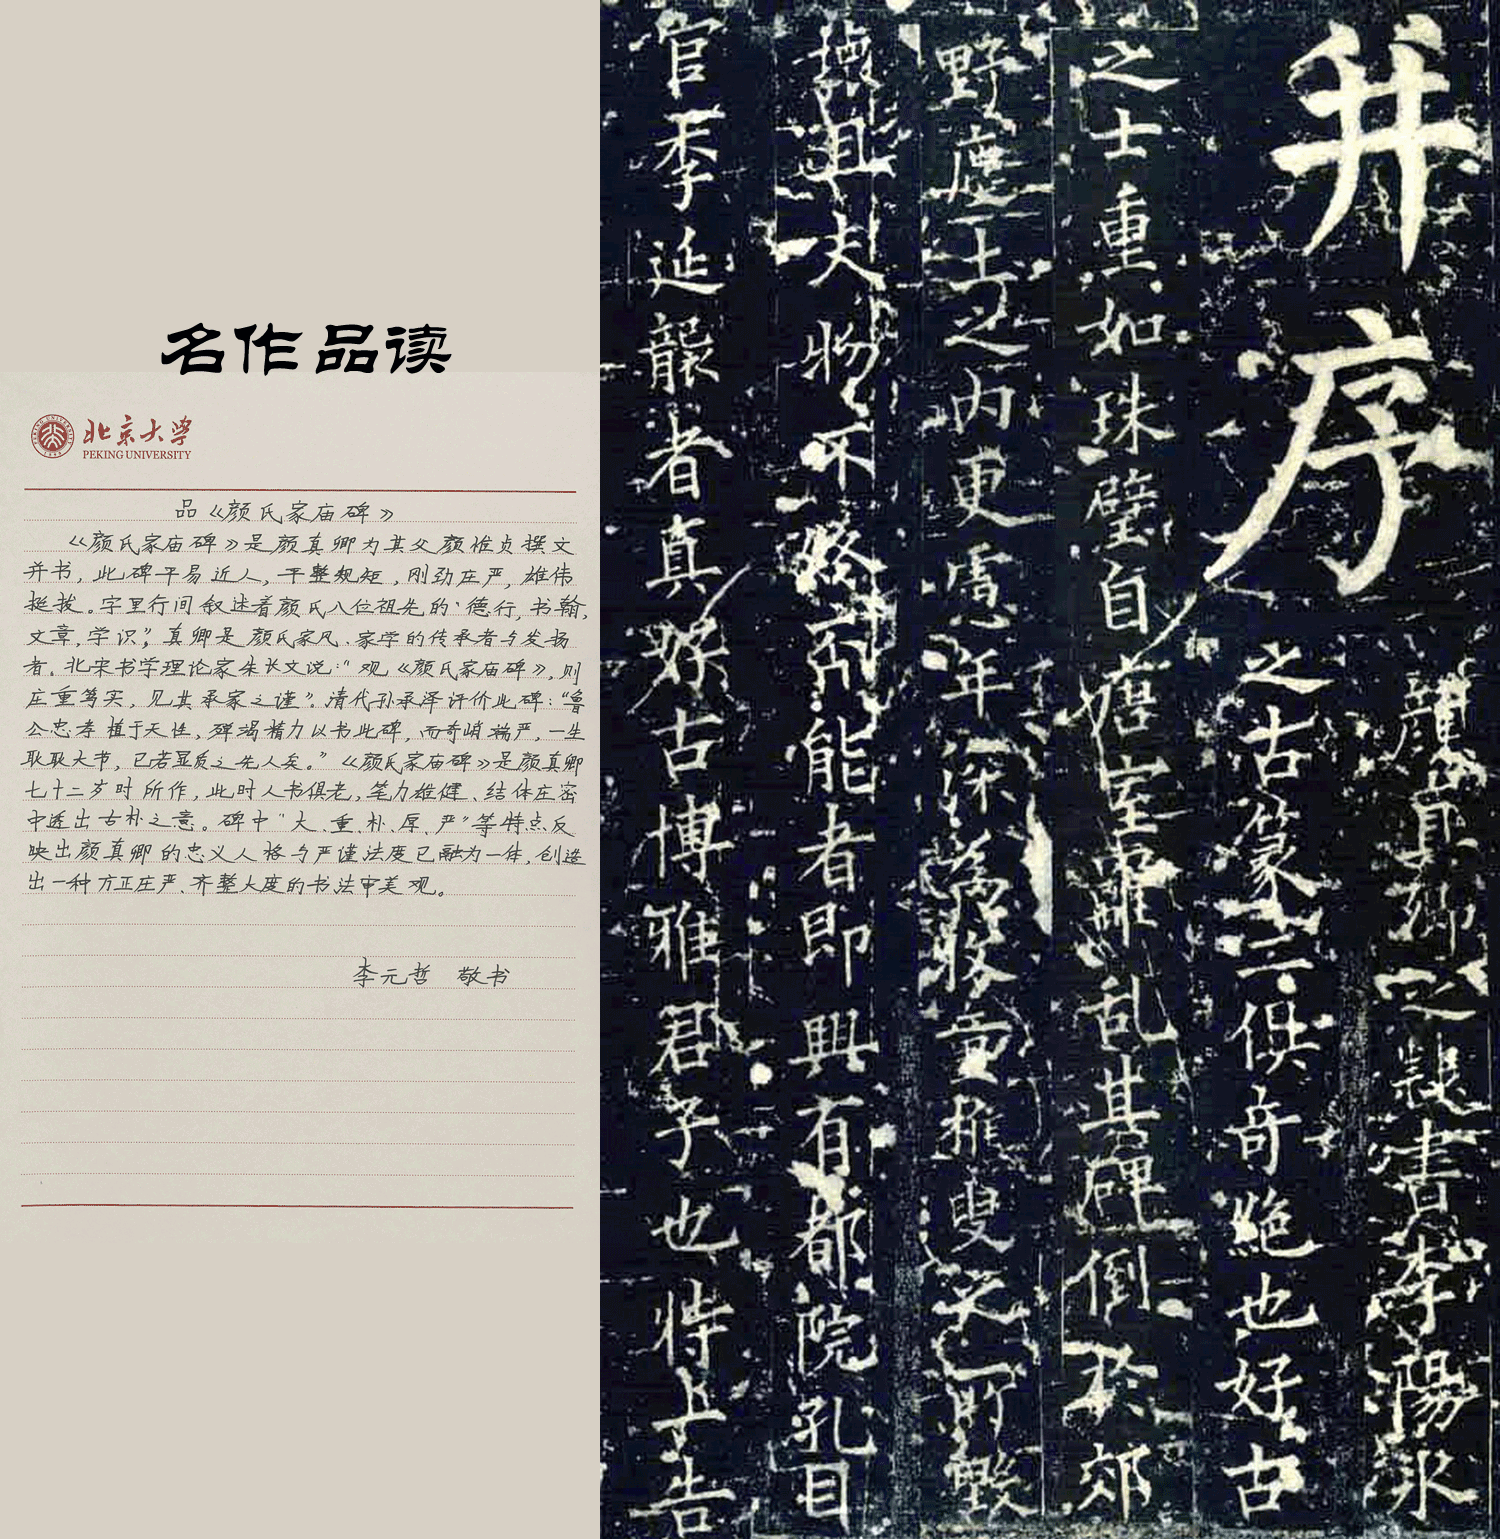 名作品读
北京大学
PEKING UNIVERSITY
品《颜氏家庙碑》
《颜氏家庙碑》是颜真卿为其父颜惟贞撰文
并书，此碑平易近人，平整规矩，刚劲庄严，雄伟
挺拔。字里行间叙述着颜氏八位祖先的“德行，书翰，
文章，学识”，真卿是颜氏家风、家学的传承者与发扬
者。北宋书学理论家朱长文说：“观《颜氏家庙碑》，则
庄重笃实，见其承家之谨”。清代孙承泽评价此碑：“鲁
公忠孝植于天性，殚竭精力以书此碑，而奇峭端严，一生
耿耿大节，已若显质之先人矣。”《颜氏家庙碑》是颜真卿
七十二岁时所作，此时人书俱老，笔力雄健、结体庄密
中透出古朴之意。碑中“大、重、朴、厚、严”等特点反
映出颜真卿的忠义人格与严谨法度已融为一体，创造
出一种方正庄严、齐整大度的书法审美观。
李元哲 敬书
并序
颜真卿之隸書李陽冰
之古篆二俱奇絶也好古
之士重如珠璧自唐室離乱其碑倒於郊
野塵土之内更慮年深為牧童樵叟之所毁
壊且夫物不終否能者即興有都院孔目
官李延龔者真好古博雅君子也特上告